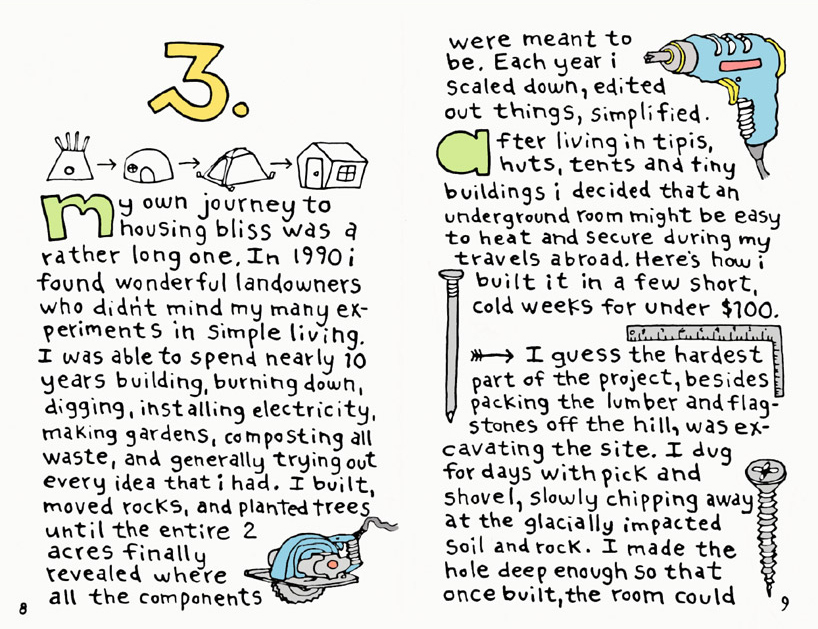 3.
My own journey to
housing bliss was a
rather long one. In 1990 i
found wonderful landowners
who didn't mind my many ex-
periments in simple living.
I was able to spend nearly 10
years building, burning down,
digging, installing electricity,
making gardens, composting all
waste, and generally trying out
every idea that i had. I built,
moved rocks, and planted trees
until the entire 2
acres finally
revealed where
all the components
8
were meant to
be. Each year i
scaled down, edited
out things, simplified.
after living in tipis,
huts, tents and tiny
buildings i decided that an
underground room might be easy
to heat and secure during my
travels abroad. Here's how i
built it in a few short,
cold weeks for under $100.
I guess the hardest
part of the project, besides
packing the lumber and flag-
stones off the hill, was ex-
cavating the site. I dug
for days with pick and
shovel, slowly chipping away
at the glacially impacted
soil and rock. I made the
hole deep enough so that
once built, the room could
9